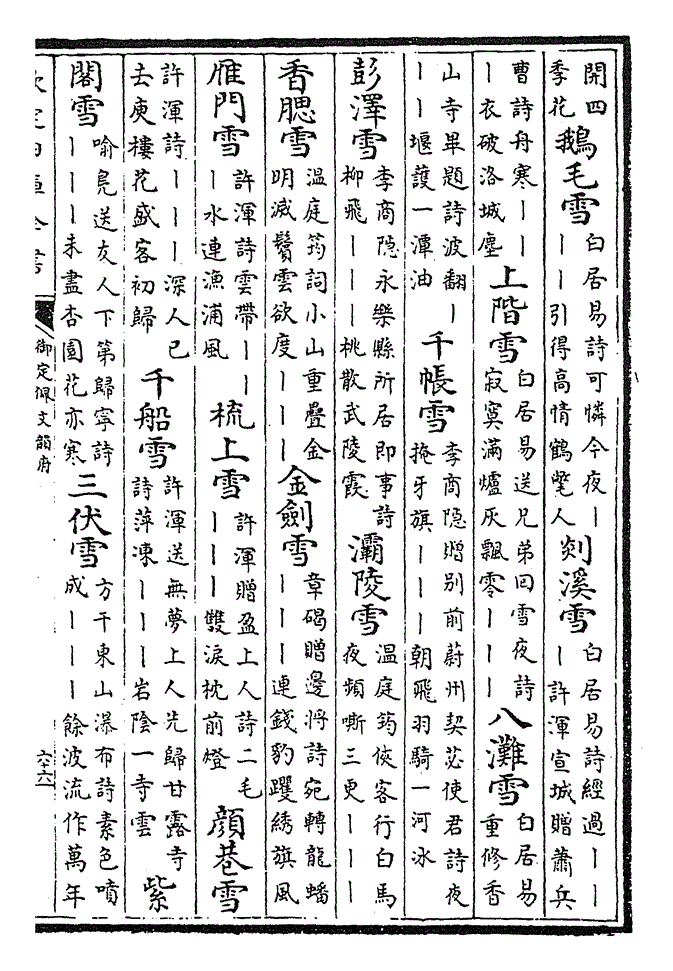 開四季花鵝毛雪白居易詩可憐今夜丨丨丨引得高情鶴氅人剡溪雪白居易詩經過丨丨丨許渾宣城贈蕭兵
曹詩舟寒丨丨丨衣破洛城塵上階雪白居易送兄弟回雪夜詩寂寞滿爐灰飄零丨丨丨八灘雪白居易重修香
山寺畢題詩波翻丨丨丨堰護一潭油千帳雪李商隱贈别前蔚州契苾使君詩夜掩牙旗丨丨丨朝飛羽騎一河冰
彭澤雪李商隱永樂縣所居即事詩柳飛丨丨丨桃散武陵霞灞陵雪温庭筠俠客行白馬夜頻嘶三更丨丨丨
香腮雪温庭筠詞小山重疊金明滅鬢雲欲度丨丨丨金劍雪章碣贈邊將詩宛轉龍蟠丨丨丨連錢豹躩綉旗風
雁門雪許渾詩雲帶丨丨丨水連漁浦風梳上雪許渾贈盈上人詩二毛丨丨丨雙淚枕前燈顔巷雪
許渾詩丨丨丨深人已去庾樓花盛客初歸千船雪許渾送無夢上人先歸甘露寺詩萍凍丨丨丨岩陰一寺雲紫
閣雪喻鳧送友人下第歸寧詩丨丨丨未盡杏園花亦寒三伏雪方干東山瀑布詩素色噴成丨丨丨餘波流作萬年
欽定四庫全書
御定佩文韻府
六十六